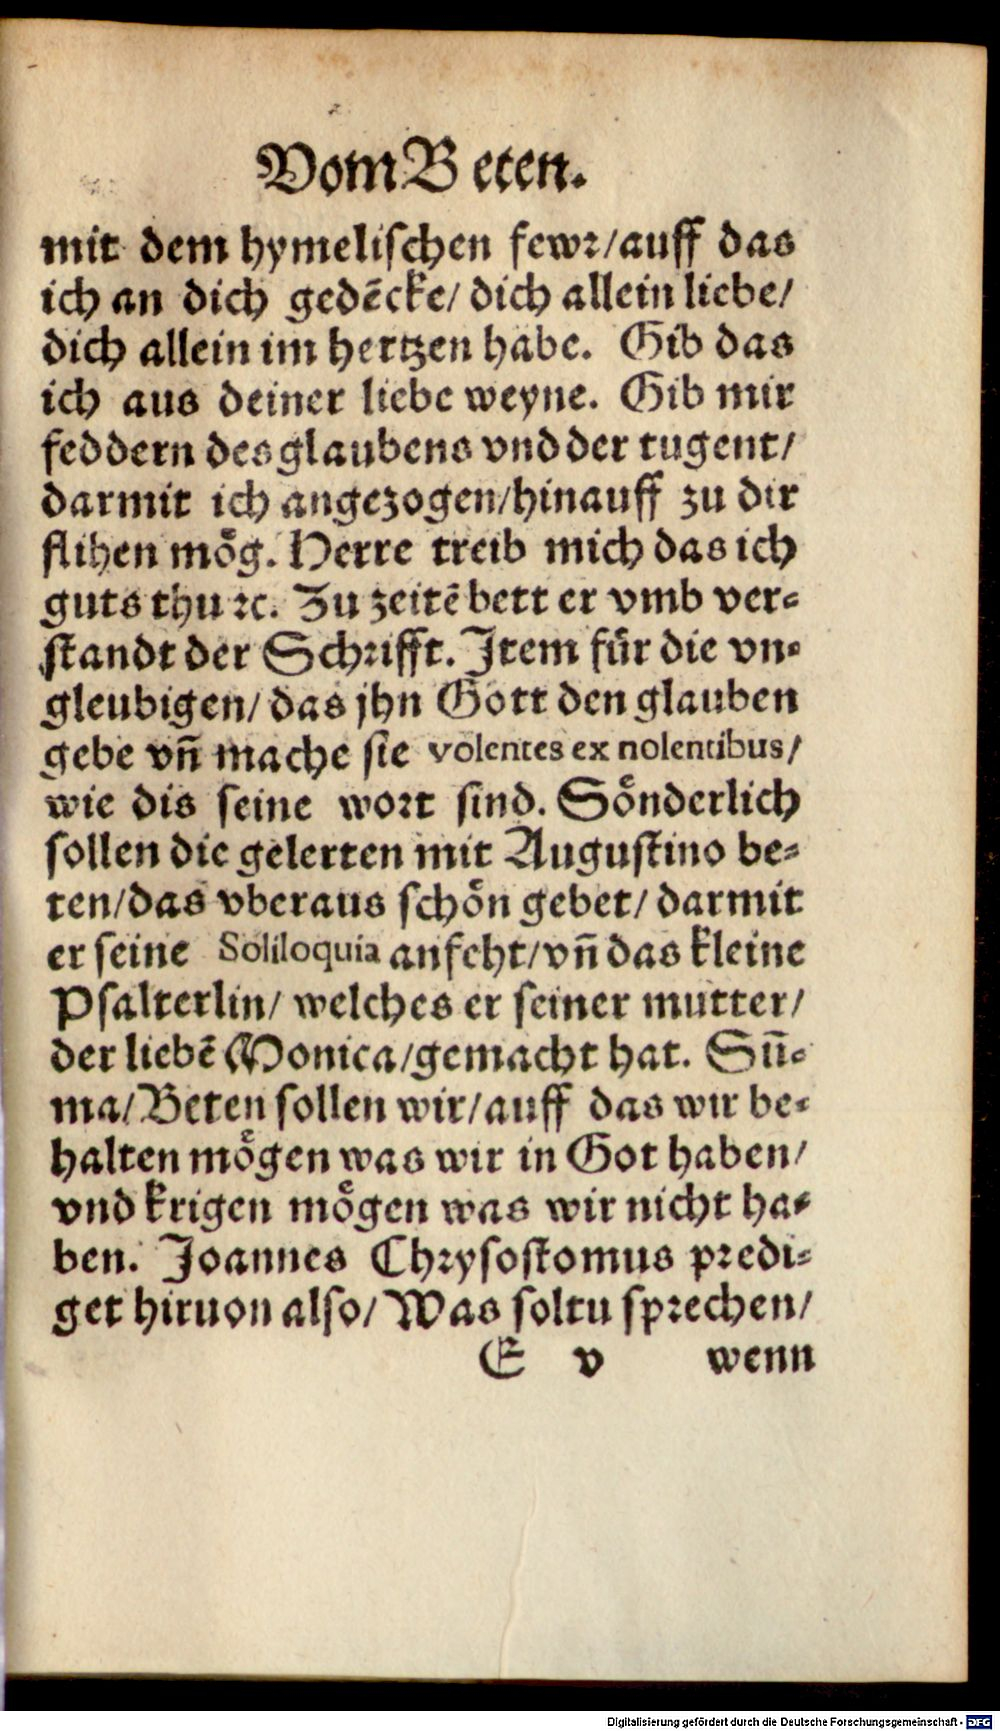 Vom Beten.
mit dem hymelischen fewr/auff das
ich an dich gedēcke/ dich allein liebe/
dich allein im hertzen habe. Gib das
ich aus deiner liebe weyne. Gib mir
feddern des glaubens vnd der tugent/
darmit ich angezogen/hinauff zu dir
flihen mo̊g. Herre treib mich das ich
guts thu ꝛc. Zu zeitē bett er vmb ver-
standt der Schrifft. Item fůr die vn-
gleubigen/ das jhn Gott den glauben
gebe vn̄ mache sie volentes ex nolentibus/
wie dis seine wort sind. So̊nderlich
sollen die gelerten mit Augustino be-
ten/das vberaus scho̊n gebet/ darmit
er seine Soliloquia anfeht/vn̄ das kleine
Psalterlin/ welches er seiner mutter/
der liebē Monica/gemacht hat. Su̅-
ma/Beten sollen wir/auff das wir be-
halten mo̊gen was wir in Got haben/
vnd krigen mo̊gen was wir nicht ha-
ben. Joannes Chrysostomus predi-
get hiruon also/ Was soltu sprechen/
E v wenn
Digitalisierung gefördert durch die Deutsche Forschungsgemeinschaft - DFG